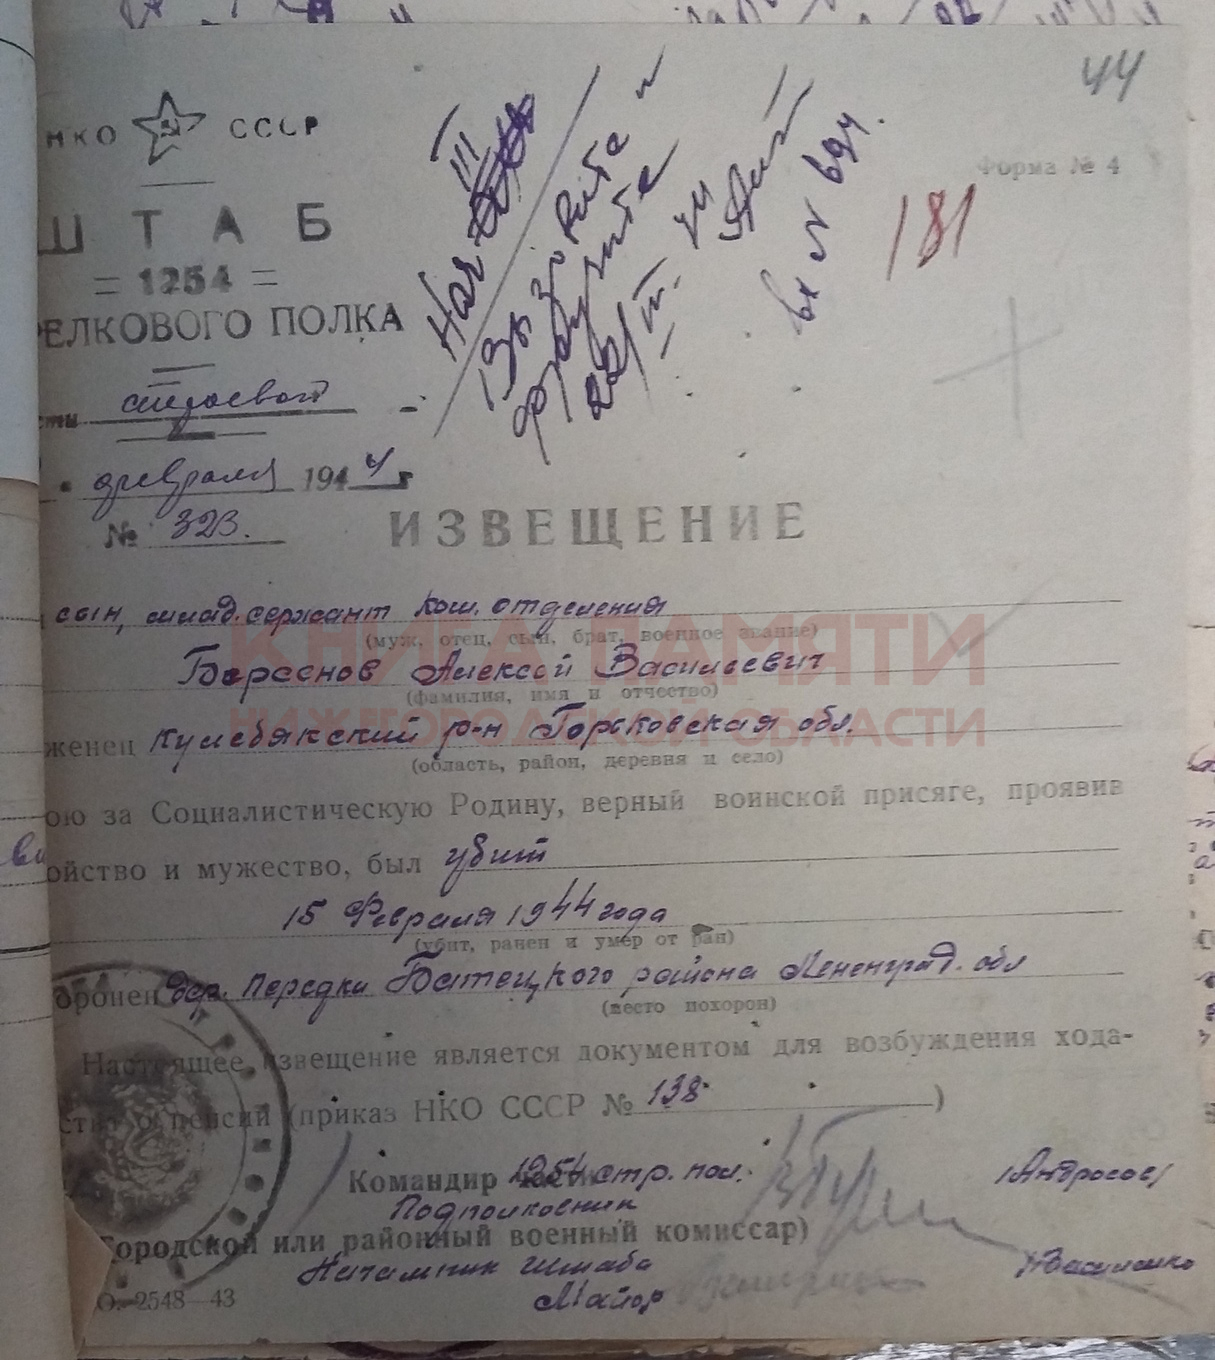 44
НКО СССР
Форма № 4
181
ШТАБ
= 1254 =
РЕЛКОВОГО ПОЛКА
Нач III
22/III- 44
вх № 694.
февраля 1944 г
№ 323.
ИЗВЕЩЕНИЕ
сын, млад. сержант ком. отделения
(муж, отец, сын, брат, военное звание)
КНИГА ПАМЯТИ
Барсенов Алексей Васильевич
(фамилия, имя и отчество)
НИЖЕГОРОДСКОЙ ОБЛАСТИ
женец Кулебякский р-н Горьковская обл.
(область, район, деревня и село)
ою за Социалистическую Родину, верный воинской присяге, проявив
ойство и мужество, был убит
15 Февраля 1944 года
(убит, ранен и умер от ран)
оронен дер. Передки Батецкого района Ленинград. обл
(место похорон)
Настоящее извещение является документом для возбуждения хода-
ства о пенсии (приказ НКО СССР № 138 )
Командир 1254 стр. пол.
Подполковник
/Андросов/
Городской или районный военный комиссар)
Начальник Штаба
Майор
О.-2548—43